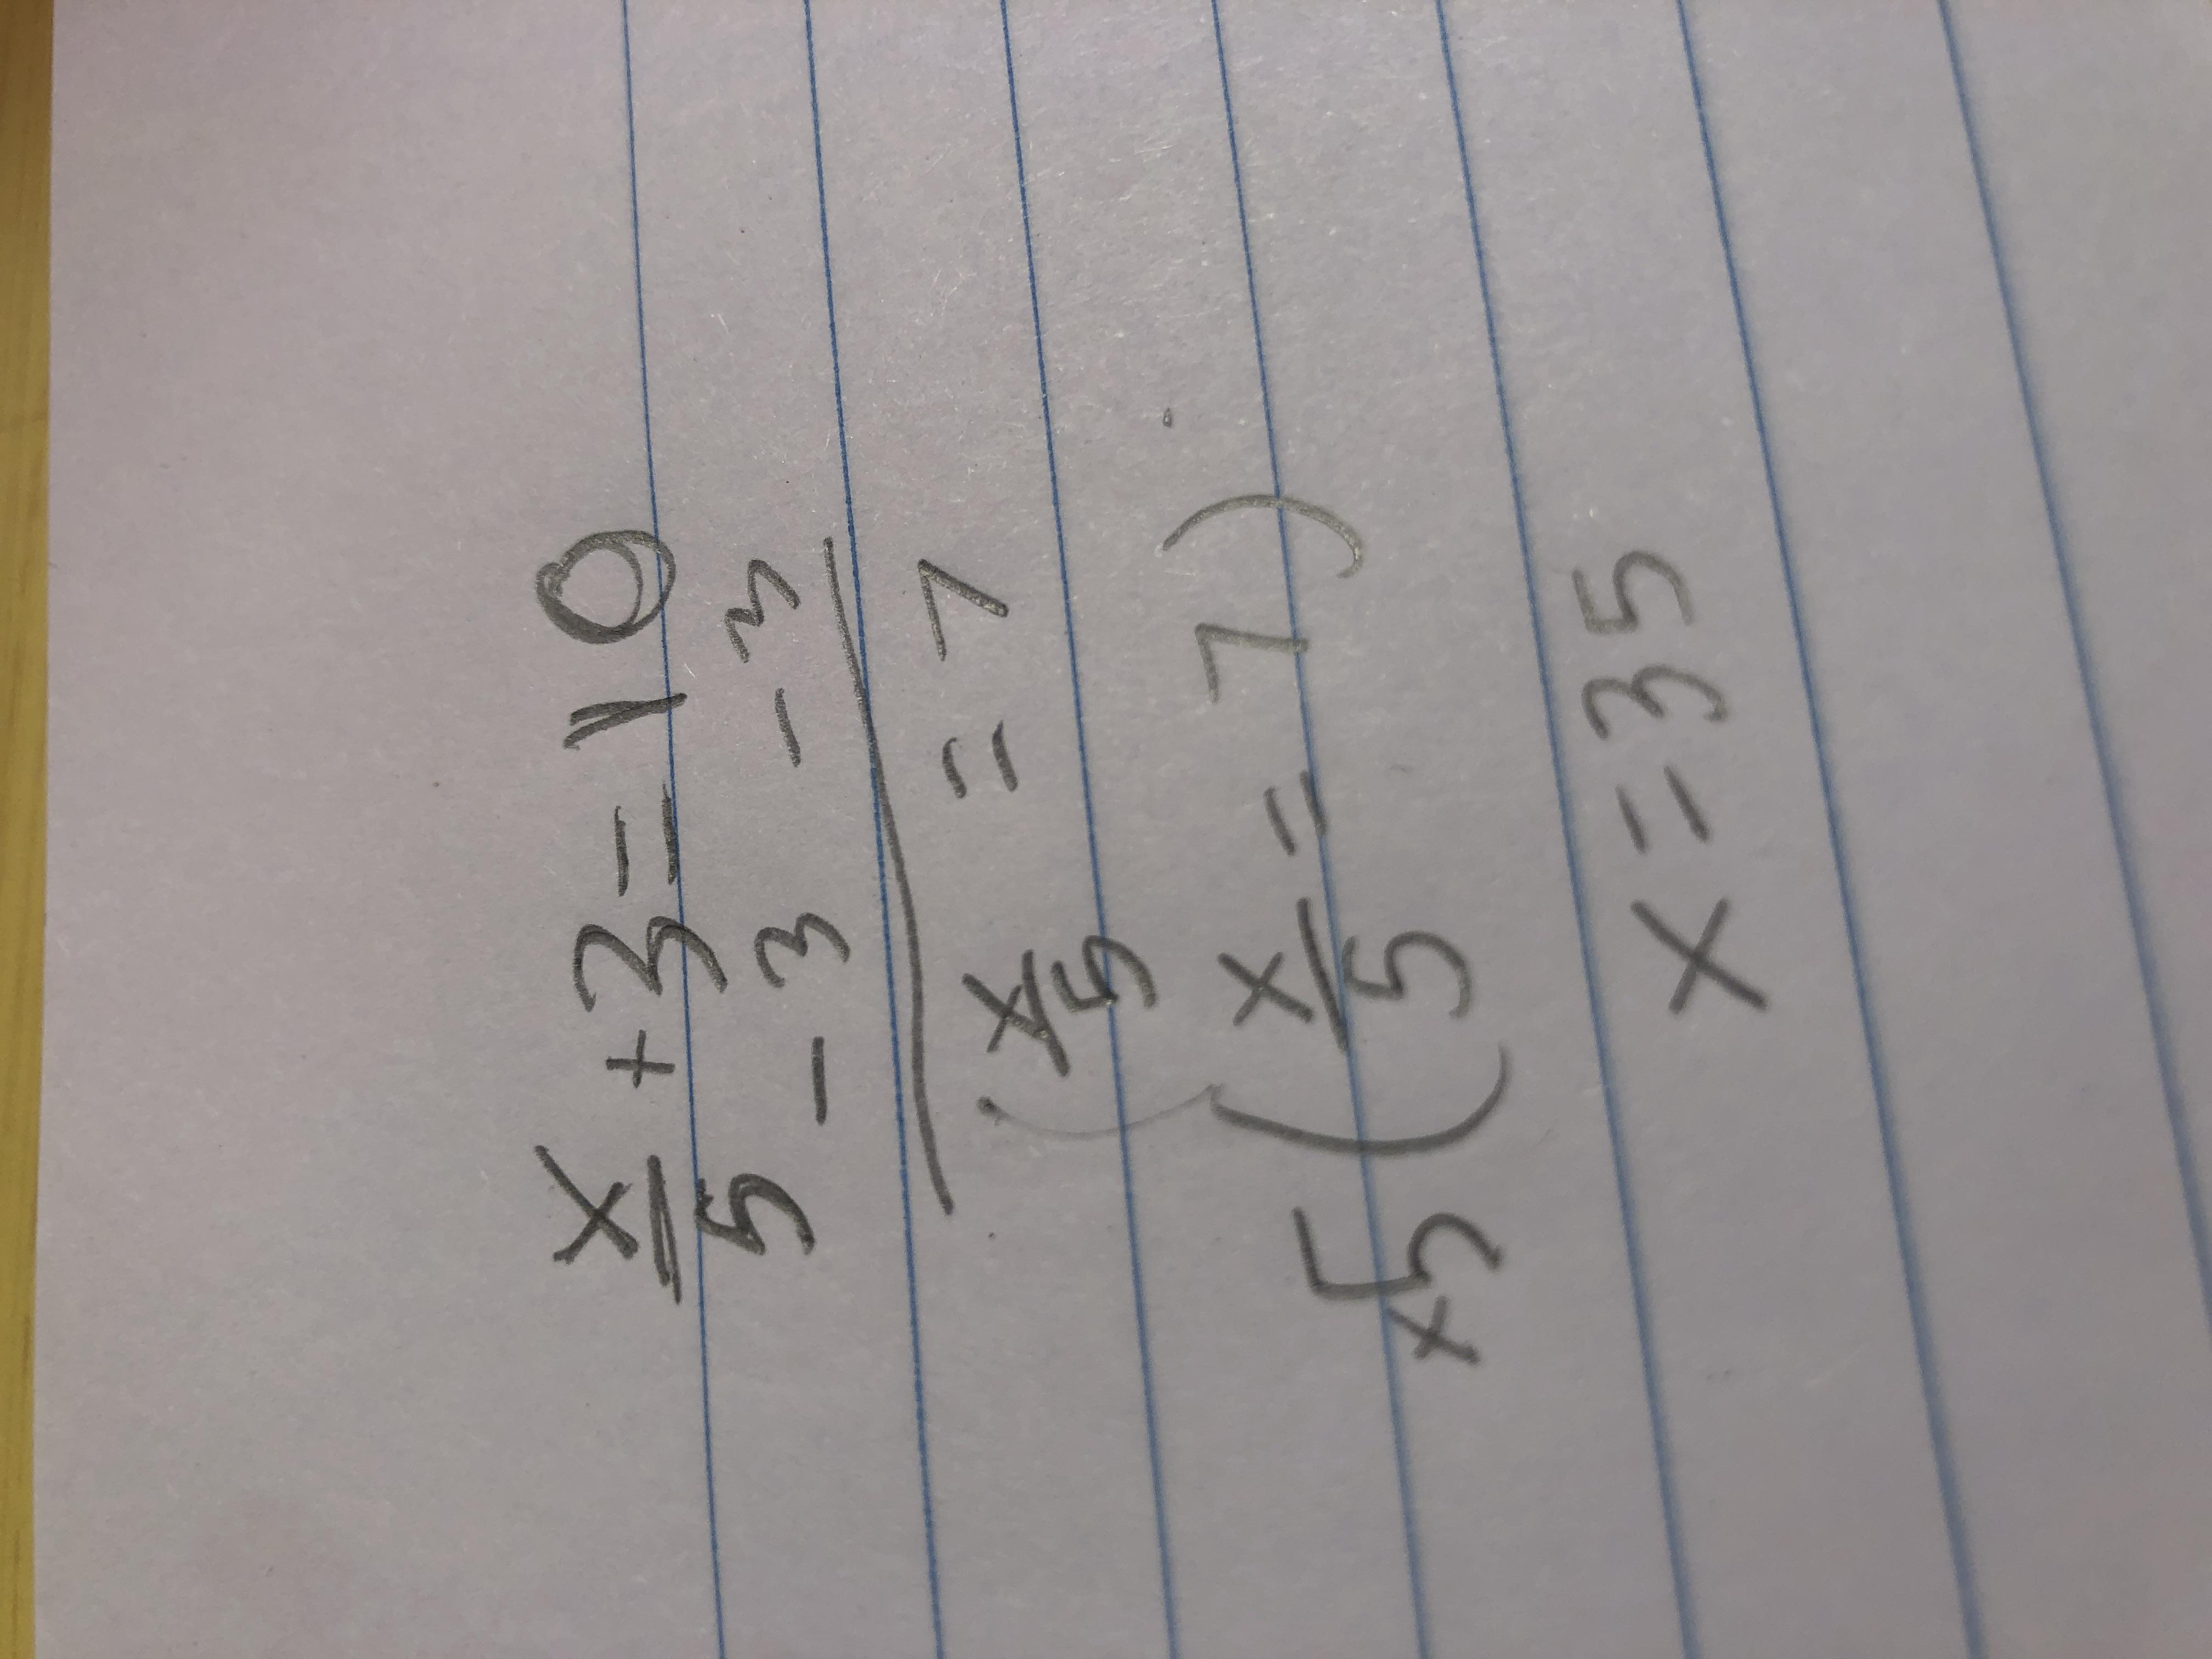 x/5 + 3 = 10
- 3 - 3
x/5 = 7
x5 ( x/5 = 7 )
x = 35